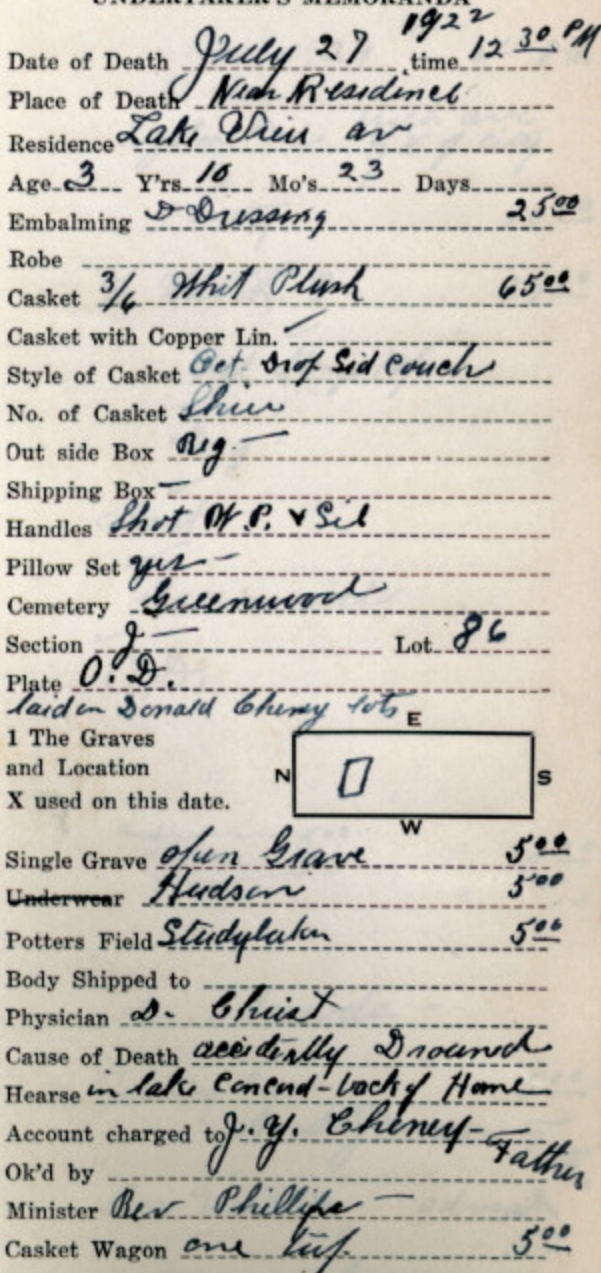 UNDERTAKER'S MEMORANDA
1922
Date of Death July 27 time 12 30 PM
Place of Death Near Residence
Residence Lake View av
Age 3 Y'rs 10 Mo's 23 Days
Embalming & Dressing 25 00
Robe
Casket 3/6 Whit Plush 65 00
Casket with Copper Lin.
Style of Casket Oct Drop Sid Couch
No. of Casket
Out side Box Reg -
Shipping Box -
Handles Shot W.P. & Sil
Pillow Set yes -
Cemetery Greenwood
Section J - Lot 86
Plate O.D.
laid in Donald Cheney lots
E
1 The Graves
and Location
X used on this date.
N
S
W
Single Grave open Grave 5 00
Underwear Hudson 5 00
Potters Field Studylaker 5 00
Body Shipped to
Physician D. Christ
Cause of Death accidently Drowned
Hearse in lake Concord - back of Home
Account charged to J. Y. Cheney -
Father
Ok'd by
Minister Rev Phillips -
Casket Wagon one 5 00